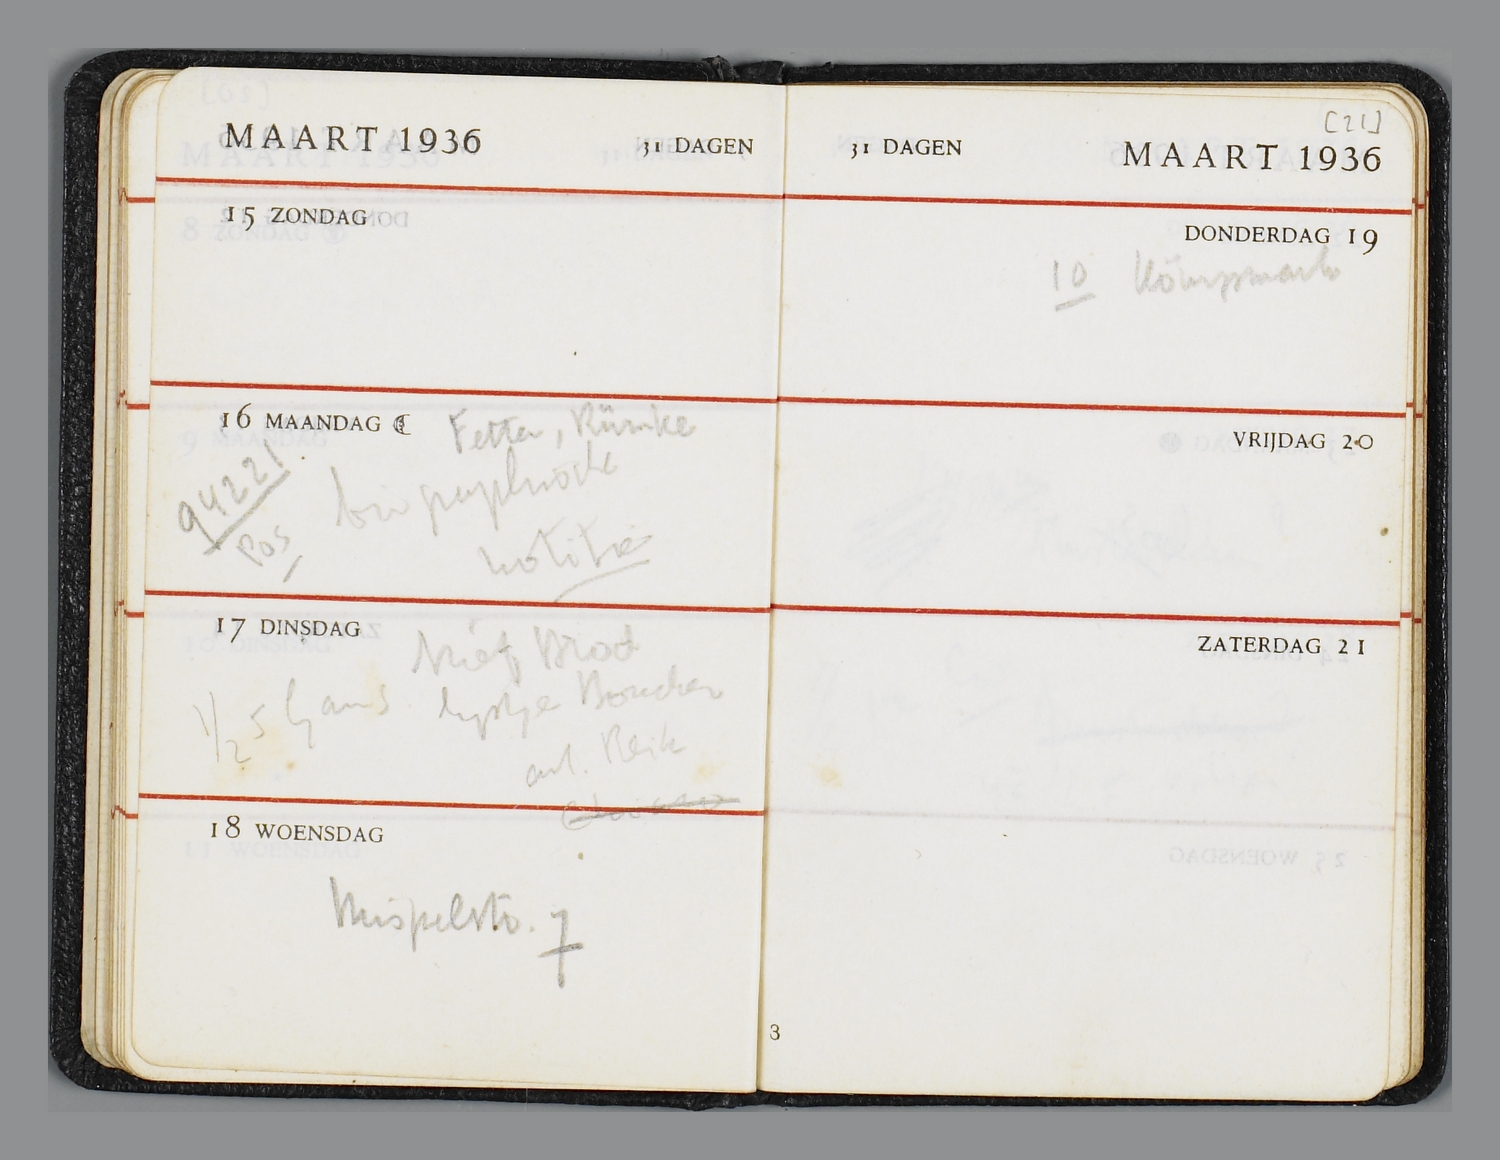 MAART 1936 31 DAGEN
15 ZONDAG
16 MAANDAG Fetter, Rümke
94221
Pos
notitie
17 DINSDAG brief Brod
1/2 5 Gans lijstje Boucher
art. Reik
18 WOENSDAG
Mispelstr. 7
3
[21]
31 DAGEN MAART 1936
DONDERDAG 19
10
VRIJDAG 20
ZATERDAG 21